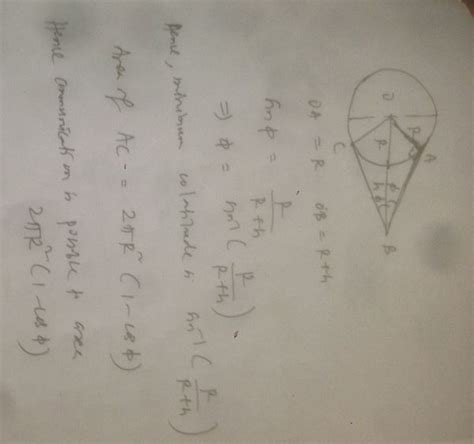 O
A
R
R
h
φ
B
C
OA = R OB = R+h
Sinφ = R/(R+h)
⇒ φ = sin⁻¹ (R/(R+h))
Hence, minimum colatitude is sin⁻¹ (R/(R+h))
Area of AC = 2πR² (1-cosφ)
Hence communication is possible area
2πR² (1-cosφ)